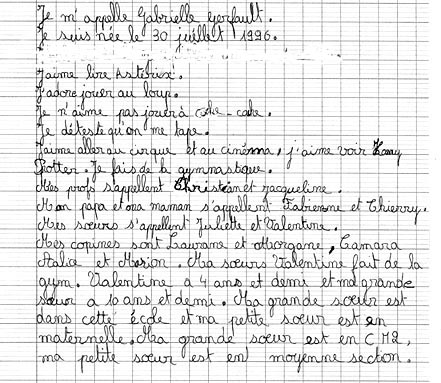 Je m'appelle Gabrielle Gerfault.
Je suis née le 30 juillet 1996.
J'aime lire Astérix.
J'adore jouer au loup.
Je n'aime pas jouer à cache-cache.
Je déteste qu'on me tape.
J'aime aller au cirque et au cinéma, j'aime voir Harry
Potter. Je fais de la gymnastique.
Mes profs s'appellent Christian et Jacqueline.
Mon papa et ma maman s'appellent Fabienne et Thierry.
Mes sœurs s'appellent Juliette et Valentine.
Mes copines sont Laurane et Morgane, Camara
Alice et Marion. Ma sœurs Valentine fait de la
gym. Valentine a 4 ans et demi et ma grande
sœur a 10 ans et demi. Ma grande sœur est
dans cette école et ma petite sœur est en
maternelle. Ma grande sœur est en CM2,
ma petite sœur est en moyenne section.